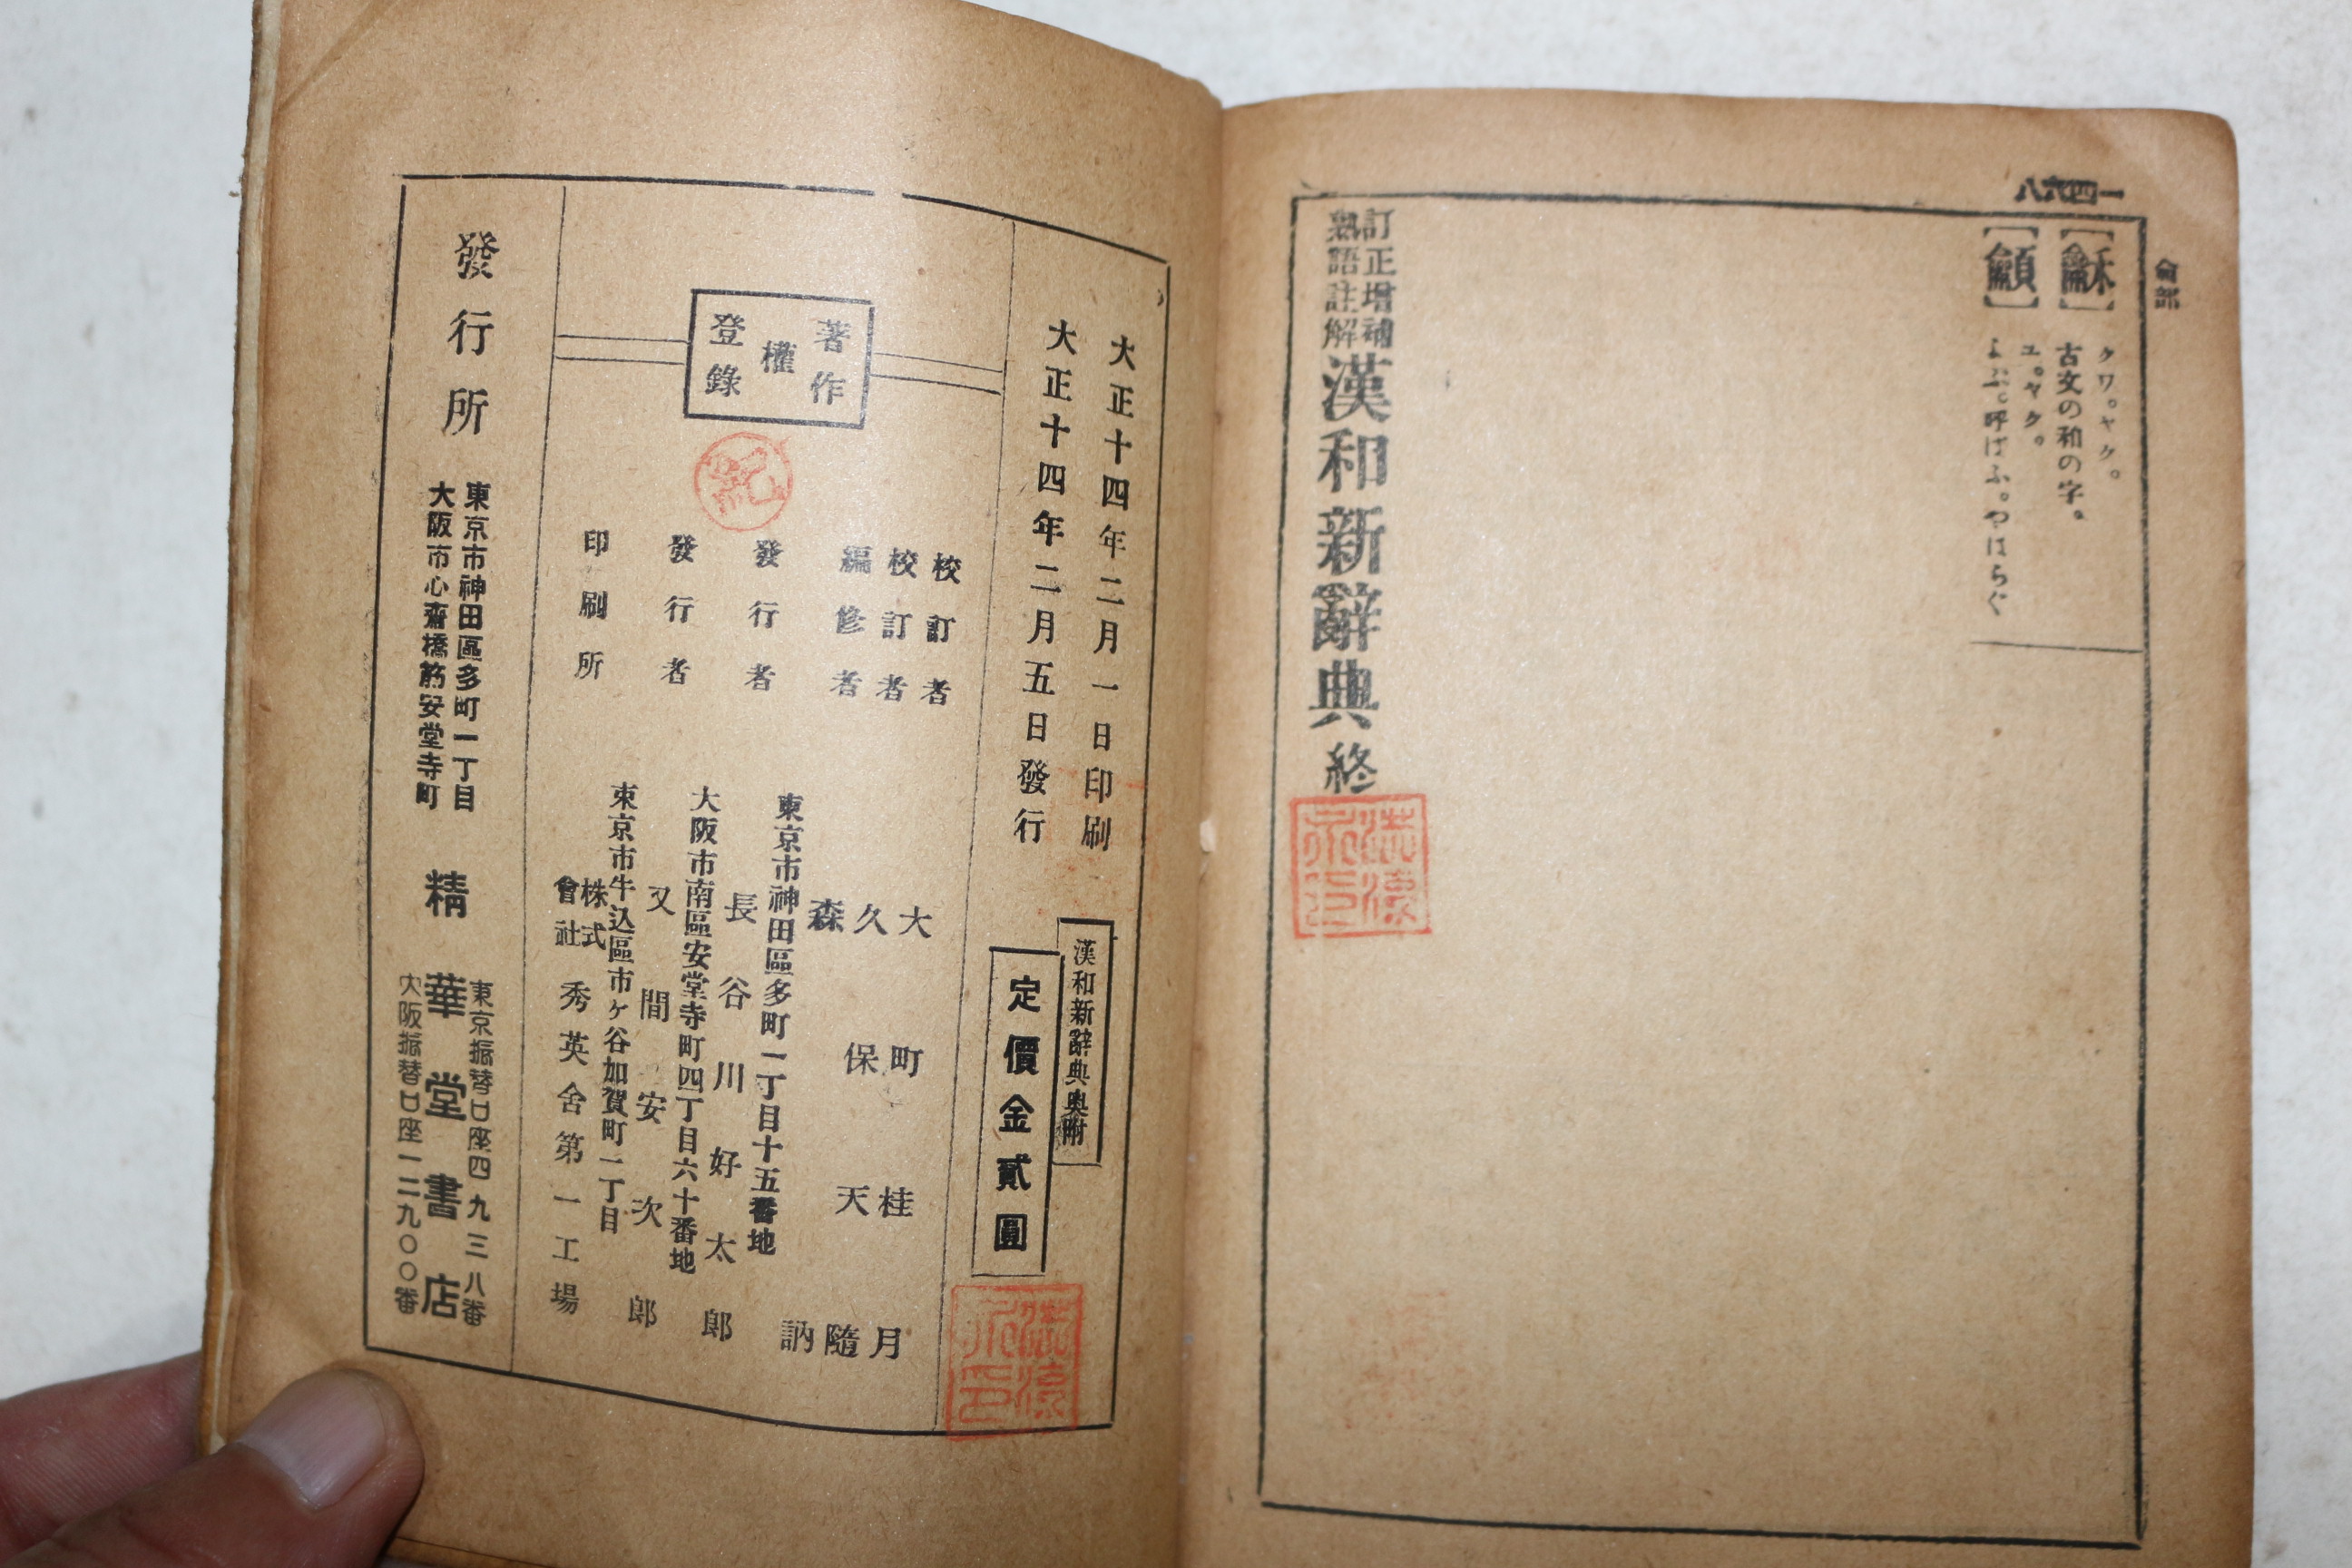 一四六八
龠部
【龢】
クワ。ヤク。
古文の和の字。
【龥】
ユ。ヤク。
よぶ。呼ばふ。やはらぐ
訂正增補
熟語註解
漢和新辭典終
大正十四年二月一日印刷
大正十四年二月五日發行
漢和新辭典奧附
定價金貳圓
著作權登錄
校訂者 大町桂月
校訂者 久保天隨
編修者 森 訥
東京市神田區多町一丁目十五番地
發行者 長谷川好太郎
大阪市南區安堂寺町四丁目六十番地
發行者 又間安次郎
東京市牛込區市ヶ谷加賀町一丁目
印刷所 株式會社秀英舍第一工場
發行所
東京市神田區多町一丁目
大阪市心齋橋筋安堂寺町
精華堂書店
東京振替口座四九三八番
大阪振替口座一二九〇〇番